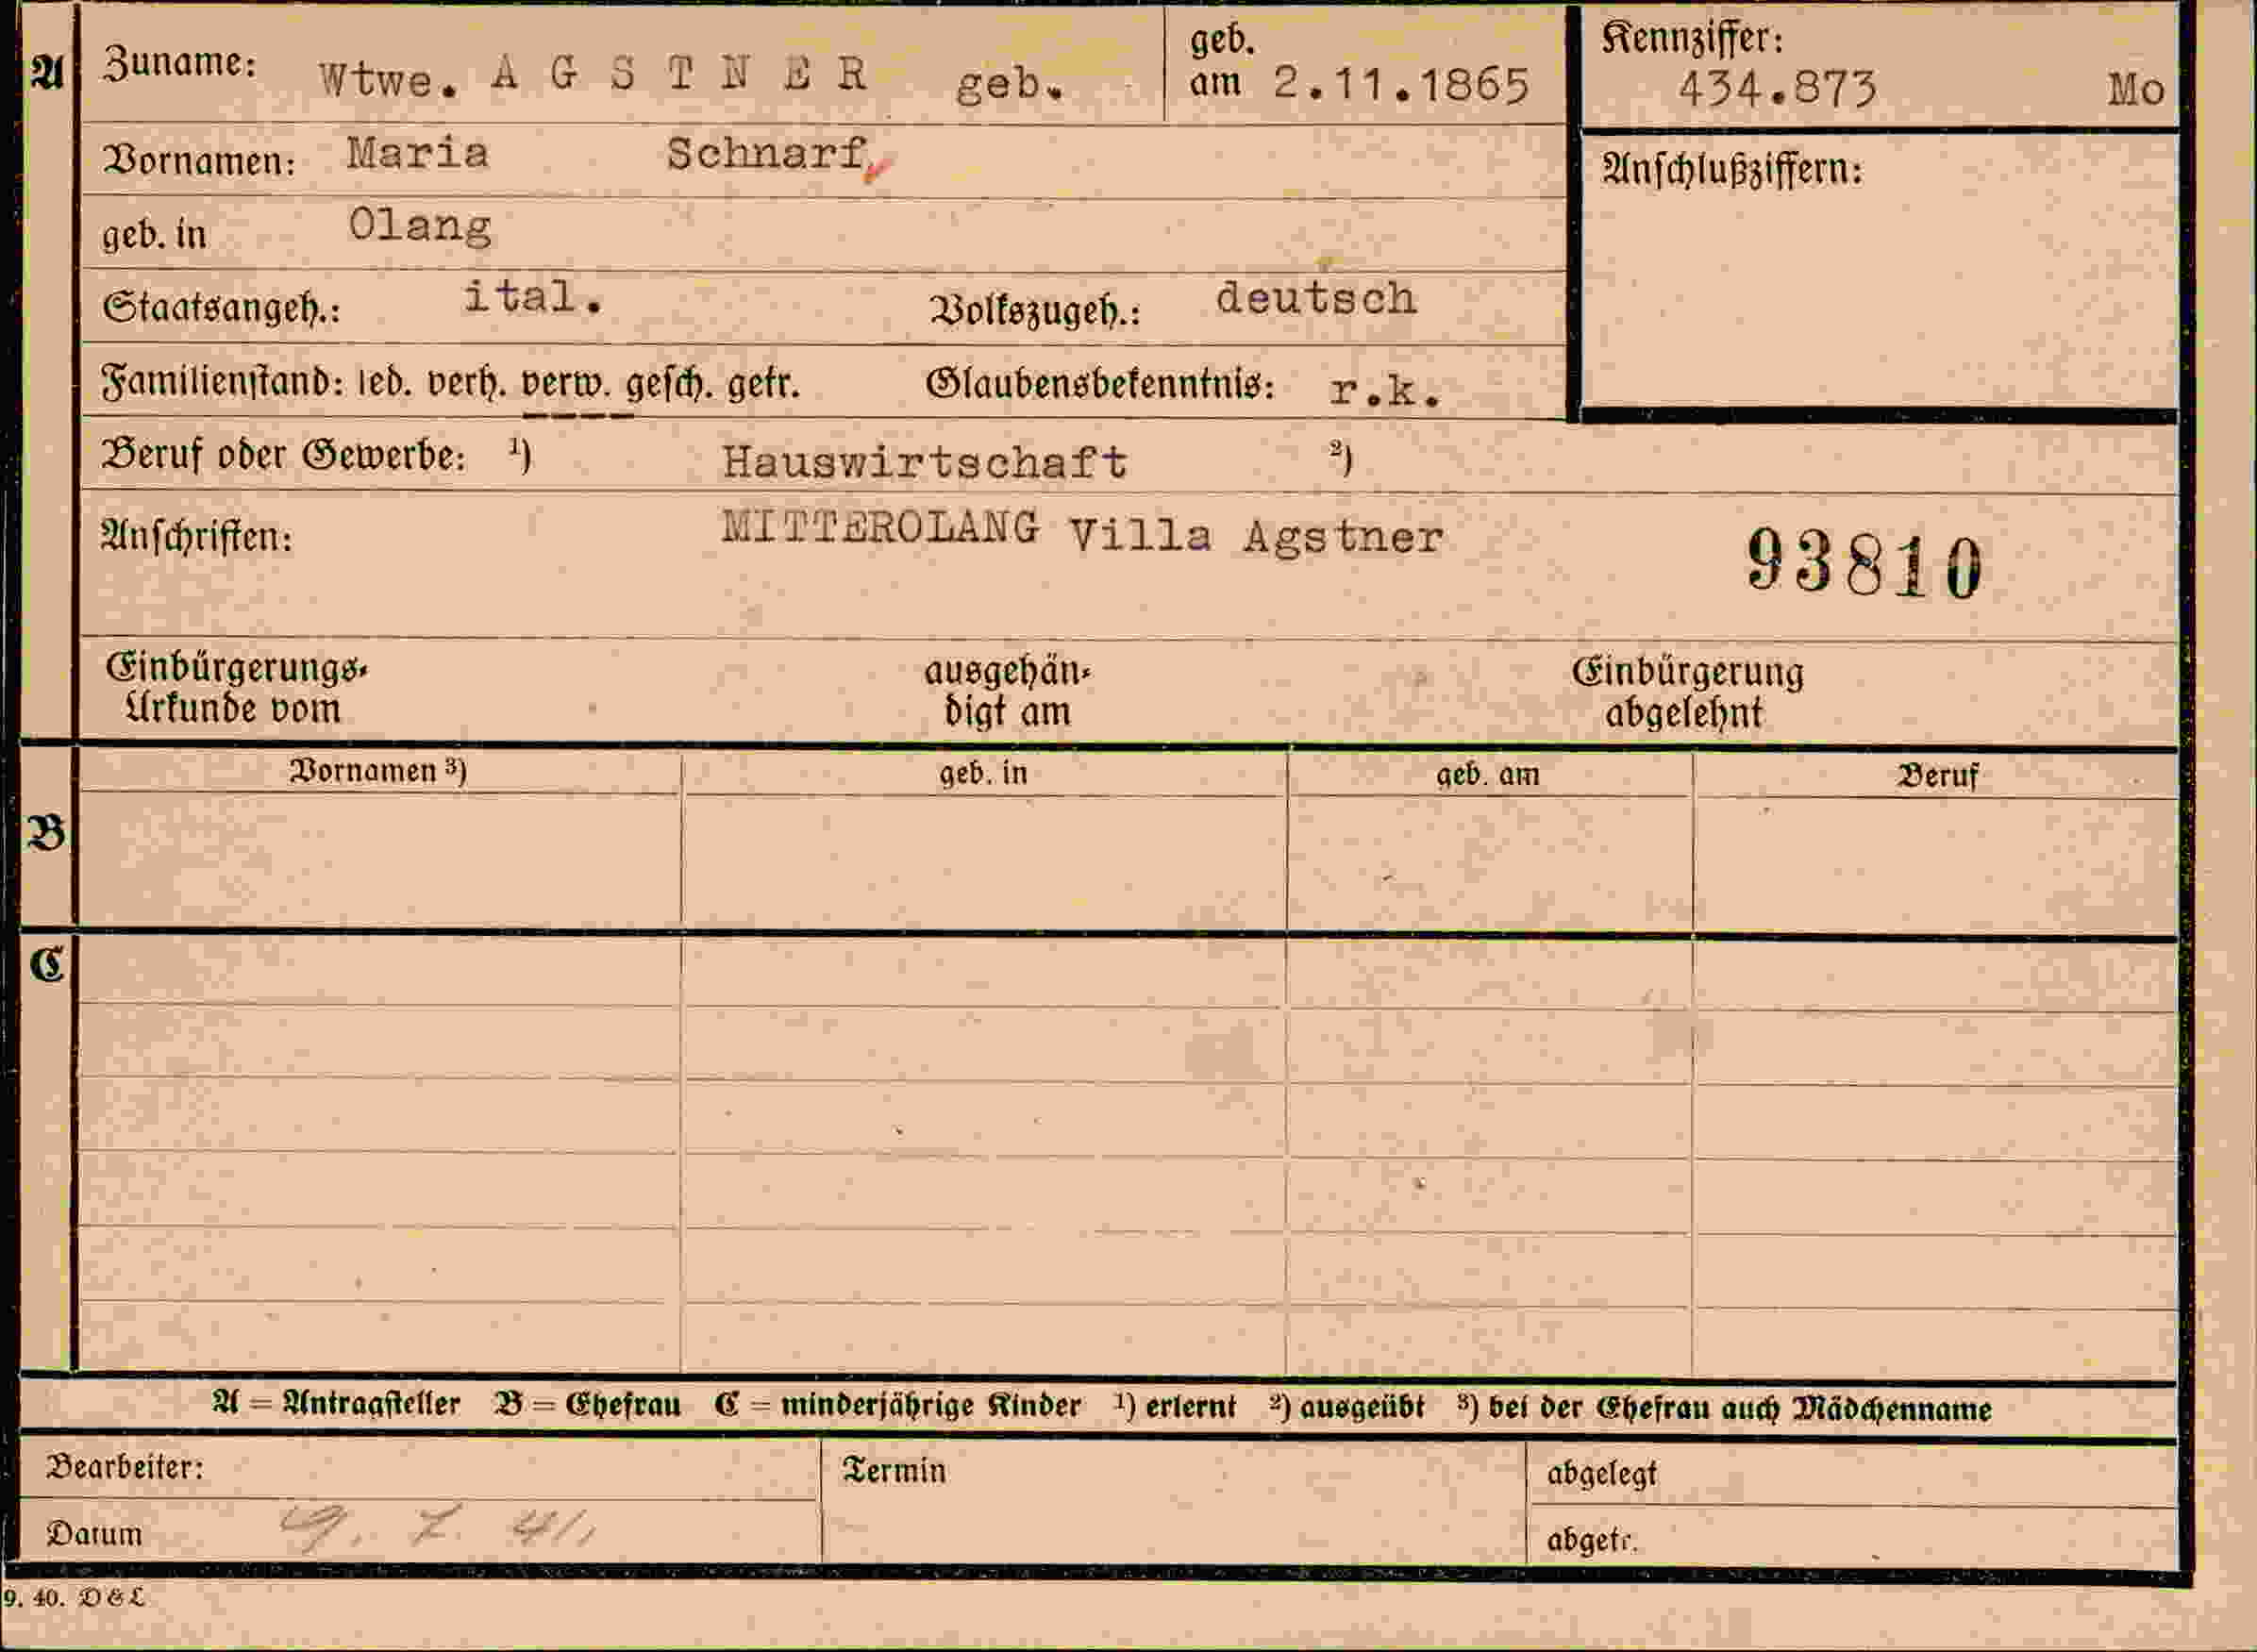 A Zuname: Wtwe. A G S T N E R geb. geb. am 2.11.1865 Kennziffer: 434.873 Mo
Vornamen: Maria Schnarf, Anschlußziffern:
geb. in Olang
Staatsangeh.: ital. Volkszugeh.: deutsch
Familienstand: led. verh. verw. gesch. getr. Glaubensbekenntnis: r.k.
Beruf oder Gewerbe: ¹) Hauswirtschaft ²)
Anschriften: MITTEROLANG Villa Agstner 93810
Einbürgerungs- ausgehän- Einbürgerung
Urkunde vom digt am abgelehnt
Vornamen ³) geb. in geb. am Beruf
B
C
A = Antragsteller B = Ehefrau C = minderjährige Kinder ¹) erlernt ²) ausgeübt ³) bei der Ehefrau auch Mädchenname
Bearbeiter: Termin abgelegt
Datum 9. 7. 41, abgetr.
9. 40. D & L